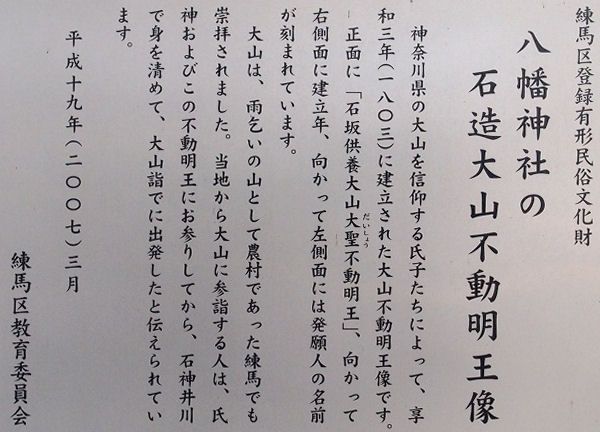 練馬区登録有形民俗文化財
八幡神社の
石造大山不動明王像
神奈川県の大山を信仰する氏子たちによって、享
和三年(一八〇三)に建立された大山不動明王像です。
正面に「石坂供養大山大聖不動明王」、向かって
だいしょう
右側面に建立年、向かって左側面には発願人の名前
が刻まれています。
大山は、雨乞いの山として農村であった練馬でも
崇拝されました。当地から大山に参詣する人は、氏
神およびこの不動明王にお参りしてから、石神井川
で身を清めて、大山詣でに出発したと伝えられてい
ます。
平成十九年(二〇〇七)三月
練馬区教育委員会